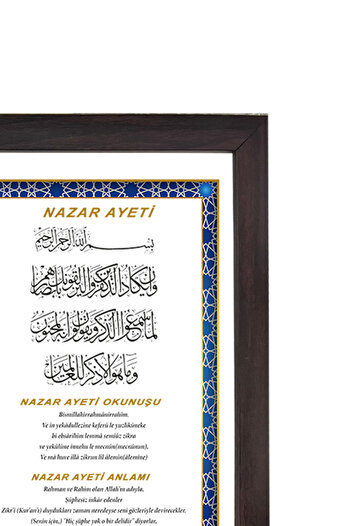 NAZAR AYETİ
بِسْمِ اللَّهِ الرَّحْمَنِ الرَّحِيمِ
وَإِنْ يَكَادُ الَّذِينَ كَفَرُوا لَيُزْلِقُونَكَ بِأَبْصَارِهِمْ
لَمَّا سَمِعُوا الذِّكْرَ وَيَقُولُونَ إِنَّهُ لَمَجْنُونٌ
وَمَا هُوَ إِلَّا ذِكْرٌ لِلْعَالَمِينَ
NAZAR AYETİ OKUNUŞU
Bismillahirrahmânirrahîm.
Ve in yekâdullezîne keferû le yuzlikûneke
bi ebsârihim lemmâ semiûz zikra
ve yekûlûne innehu le mecnûn(mecnûnun).
Ve mâ huve illâ zikrun lil âlemîn(âlemîne)
NAZAR AYETİ ANLAMI
Rahman ve Rahim olan Allah'ın adıyla.
Şüphesiz inkâr edenler
Zikr'i (Kur'an'ı) duydukları zaman neredeyse seni gözleriyle devirecekler.
(Senin için,) "Hiç şüphe yok o bir delidir" diyorlar,